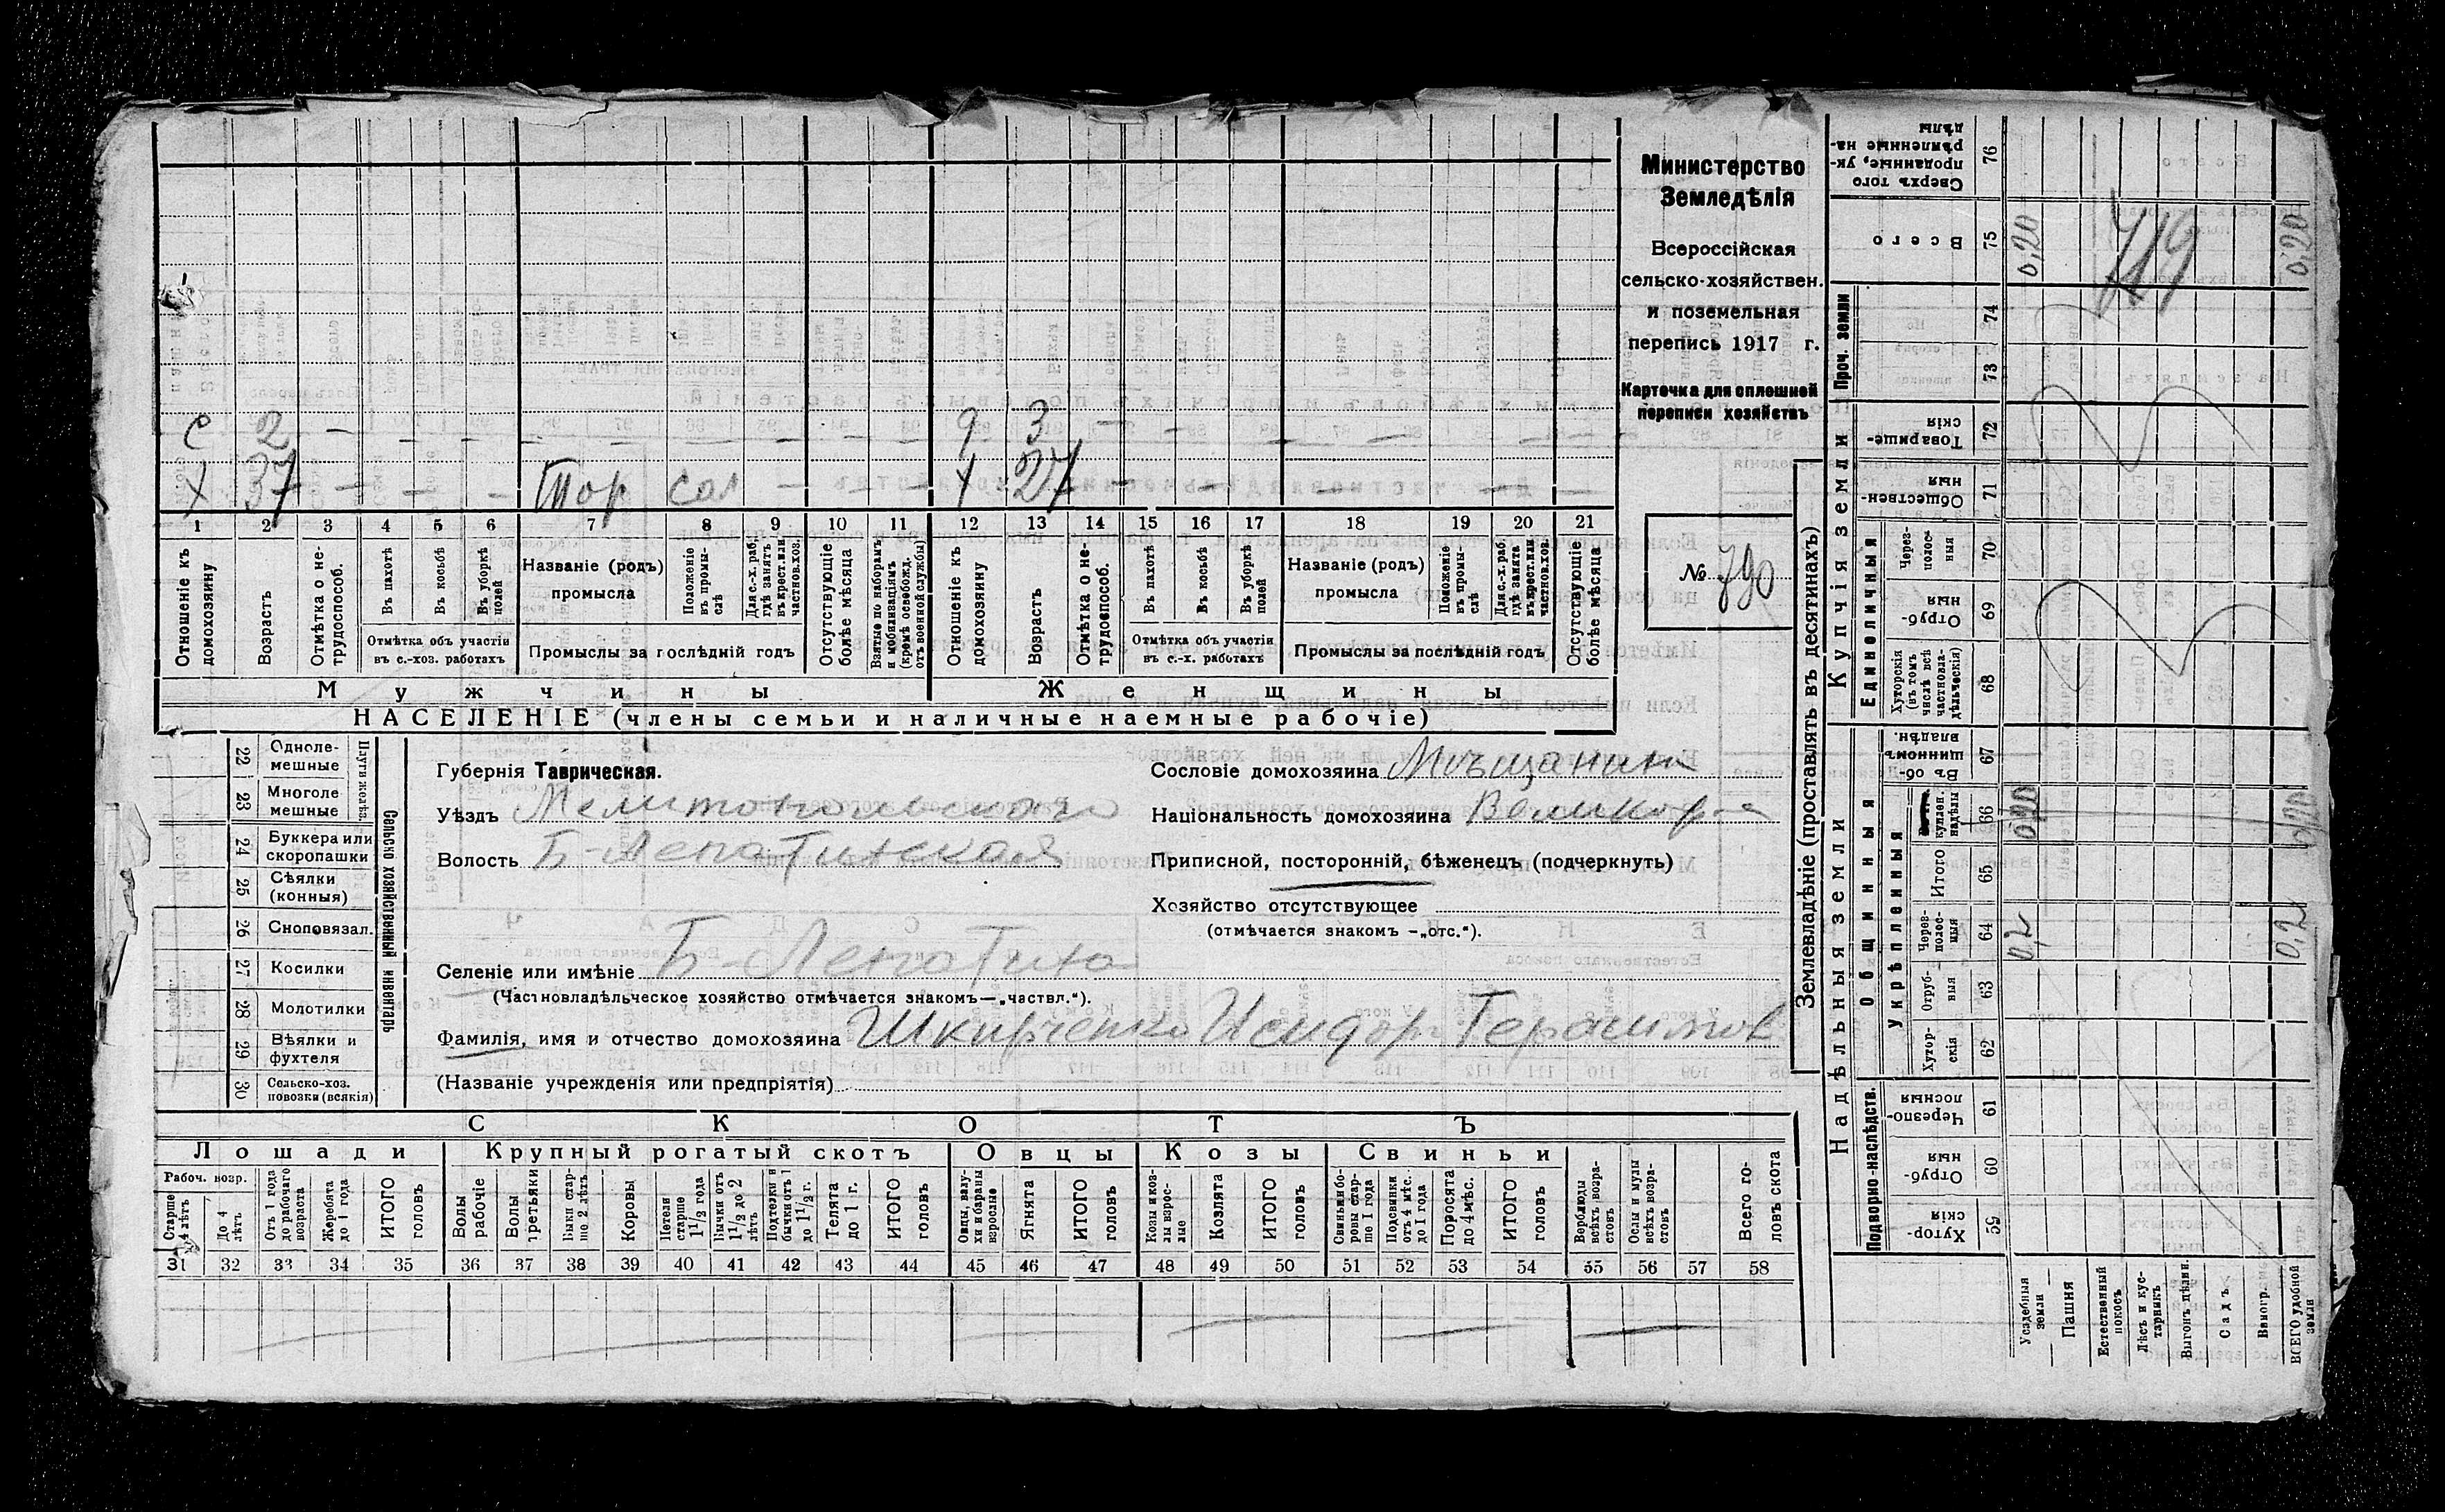 с 2 — — — — — — — — — 9 3 — — — — — — — —
х 37 — — — Тор сол — — — х 27 — — — — — —
1 2 3 4 5 6 7 8 9 10 11 12 13 14 15 16 17 18 19 20 21
Отношеніе къ домохозяину
Возрастъ
Отмѣтка о не-трудоспособ.
Въ пахотѣ
Въ косьбѣ
Въ уборкѣ полей
Отмѣтка объ участіи
въ с.-хоз. работахъ
Названіе (родъ)
промысла
Положеніе въ промы-слѣ
Для с.-х. раб. гдѣ занятъ въ крест. или частнов. хоз.
Промыслы за послѣдній годъ
Отсутствующіе болѣе мѣсяца
Взятые по наборамъ и мобилизаціямъ (кромѣ освобожд. отъ военной службы)
Отношеніе къ домохозяину
Возрастъ
Отмѣтка о не-трудоспособ.
Въ пахотѣ
Въ косьбѣ
Въ уборкѣ полей
Отмѣтка объ участіи
въ с.-х. работахъ
Названіе (родъ)
промысла
Положеніе въ промы-слѣ
Для с.-х. раб. гдѣ занята въ крест. или частнов. хоз.
Промыслы за послѣдній годъ
Отсутствующіе болѣе мѣсяца
Мужчины
Женщины
НАСЕЛЕНІЕ (члены семьи и наличные наемные рабочіе)
Министерство
Земледѣлія
Всероссійская
сельско-хозяйствен.
и поземельная
перепись 1917 г.
Карточка для сплошной
переписи хозяйствъ
№ 790
22 Одноле-мешные
23 Многоле мешные
Плуги желѣз.
24 Буккера или скоропашки
25 Сѣялки (конныя)
26 Сноповязал.
27 Косилки
28 Молотилки
29 Вѣялки и фухтеля
30 Сельско-хоз. повозки (всякія)
Сельско хозяйственный инвентарь
Губернія Таврическая.
Уѣздъ Мелитопольскаго
Волость Б-Лепатихская
Селеніе или имѣніе Б-Лепатиха
(Частновладѣльческое хозяйство отмѣчается знакомъ—„частвл.“).
Фамилія, имя и отчество домохозяина Шкирченко Исидор Герасимов
(Названіе учрежденія или предпріятія)
Сословіе домохозяина Мѣщанин
Національность домохозяина Великор-с
Приписной, посторонній, бѣженецъ (подчеркнуть)
Хозяйство отсутствующее
(отмѣчается знакомъ —„отс.“).
СКОТЪ
Лошади
Крупный рогатый скотъ
Овцы
Козы
Свиньи
Рабоч. возр.
Старше 4 лѣтъ
До 4 лѣтъ
Отъ 1 года до рабочаго возраста
Жеребята до 1 года
ИТОГО головъ
Волы рабочіе
Волы третьяки
Быки стар-ше 2 лѣтъ
Коровы
Нетели старше 1½ года
Бычки отъ 1½ до 2 лѣтъ
Подтелки и бычки отъ 1 до 1½ г.
Телята до 1 г.
ИТОГО головъ
Овцы, валу-хи и бараны взрослые
Ягнята
ИТОГО головъ
Козы и коз-лы взрос-лые
Козлята
ИТОГО головъ
Свиньи и бо-ровы стар-ше 1 года
Подсвинки отъ 4 мѣс. до 1 года
Поросята до 4 мѣс.
ИТОГО головъ
Верблюды всѣхъ возра-стовъ
Ослы и мулы всѣхъ возра-стовъ
Всего го-ловъ скота
31 32 33 34 35 36 37 38 39 40 41 42 43 44 45 46 47 48 49 50 51 52 53 54 55 56 57 58
Землевладѣніе (проставлять въ десятинахъ)
Купчія земли
Надѣльныя земли
Проч. земли
Единоличныя
Общинныя
Укрѣпленныя
Подворно-наслѣдств.
Сверхъ того проданные, ук-рѣпленные на-дѣлы 76
Всего 75 0,20 0,20
719
74
73
Товарище-скія 72
Обществен-ныя 71
Через-полос-ныя 70
Отруб-ныя 69
Хуторскія (въ томъ числѣ всѣ частновла-дѣльческія) 68
Въ об-щинномъ владѣн. 67
куплен. надѣлы 66
Итого 65
Через-полос-ныя 64 0,2 0,2
Отруб-ныя 63
Хутор-скія 62
Черезпо-лосныя 61
Отруб-ныя 60
Хутор-скія 59
Усадебныя земли
Пашня
Естественный покосъ
Лѣсъ и кус-тарникъ
Выгонъ цѣлин.
Садъ
Виногр.
ВСЕГО удобной земли